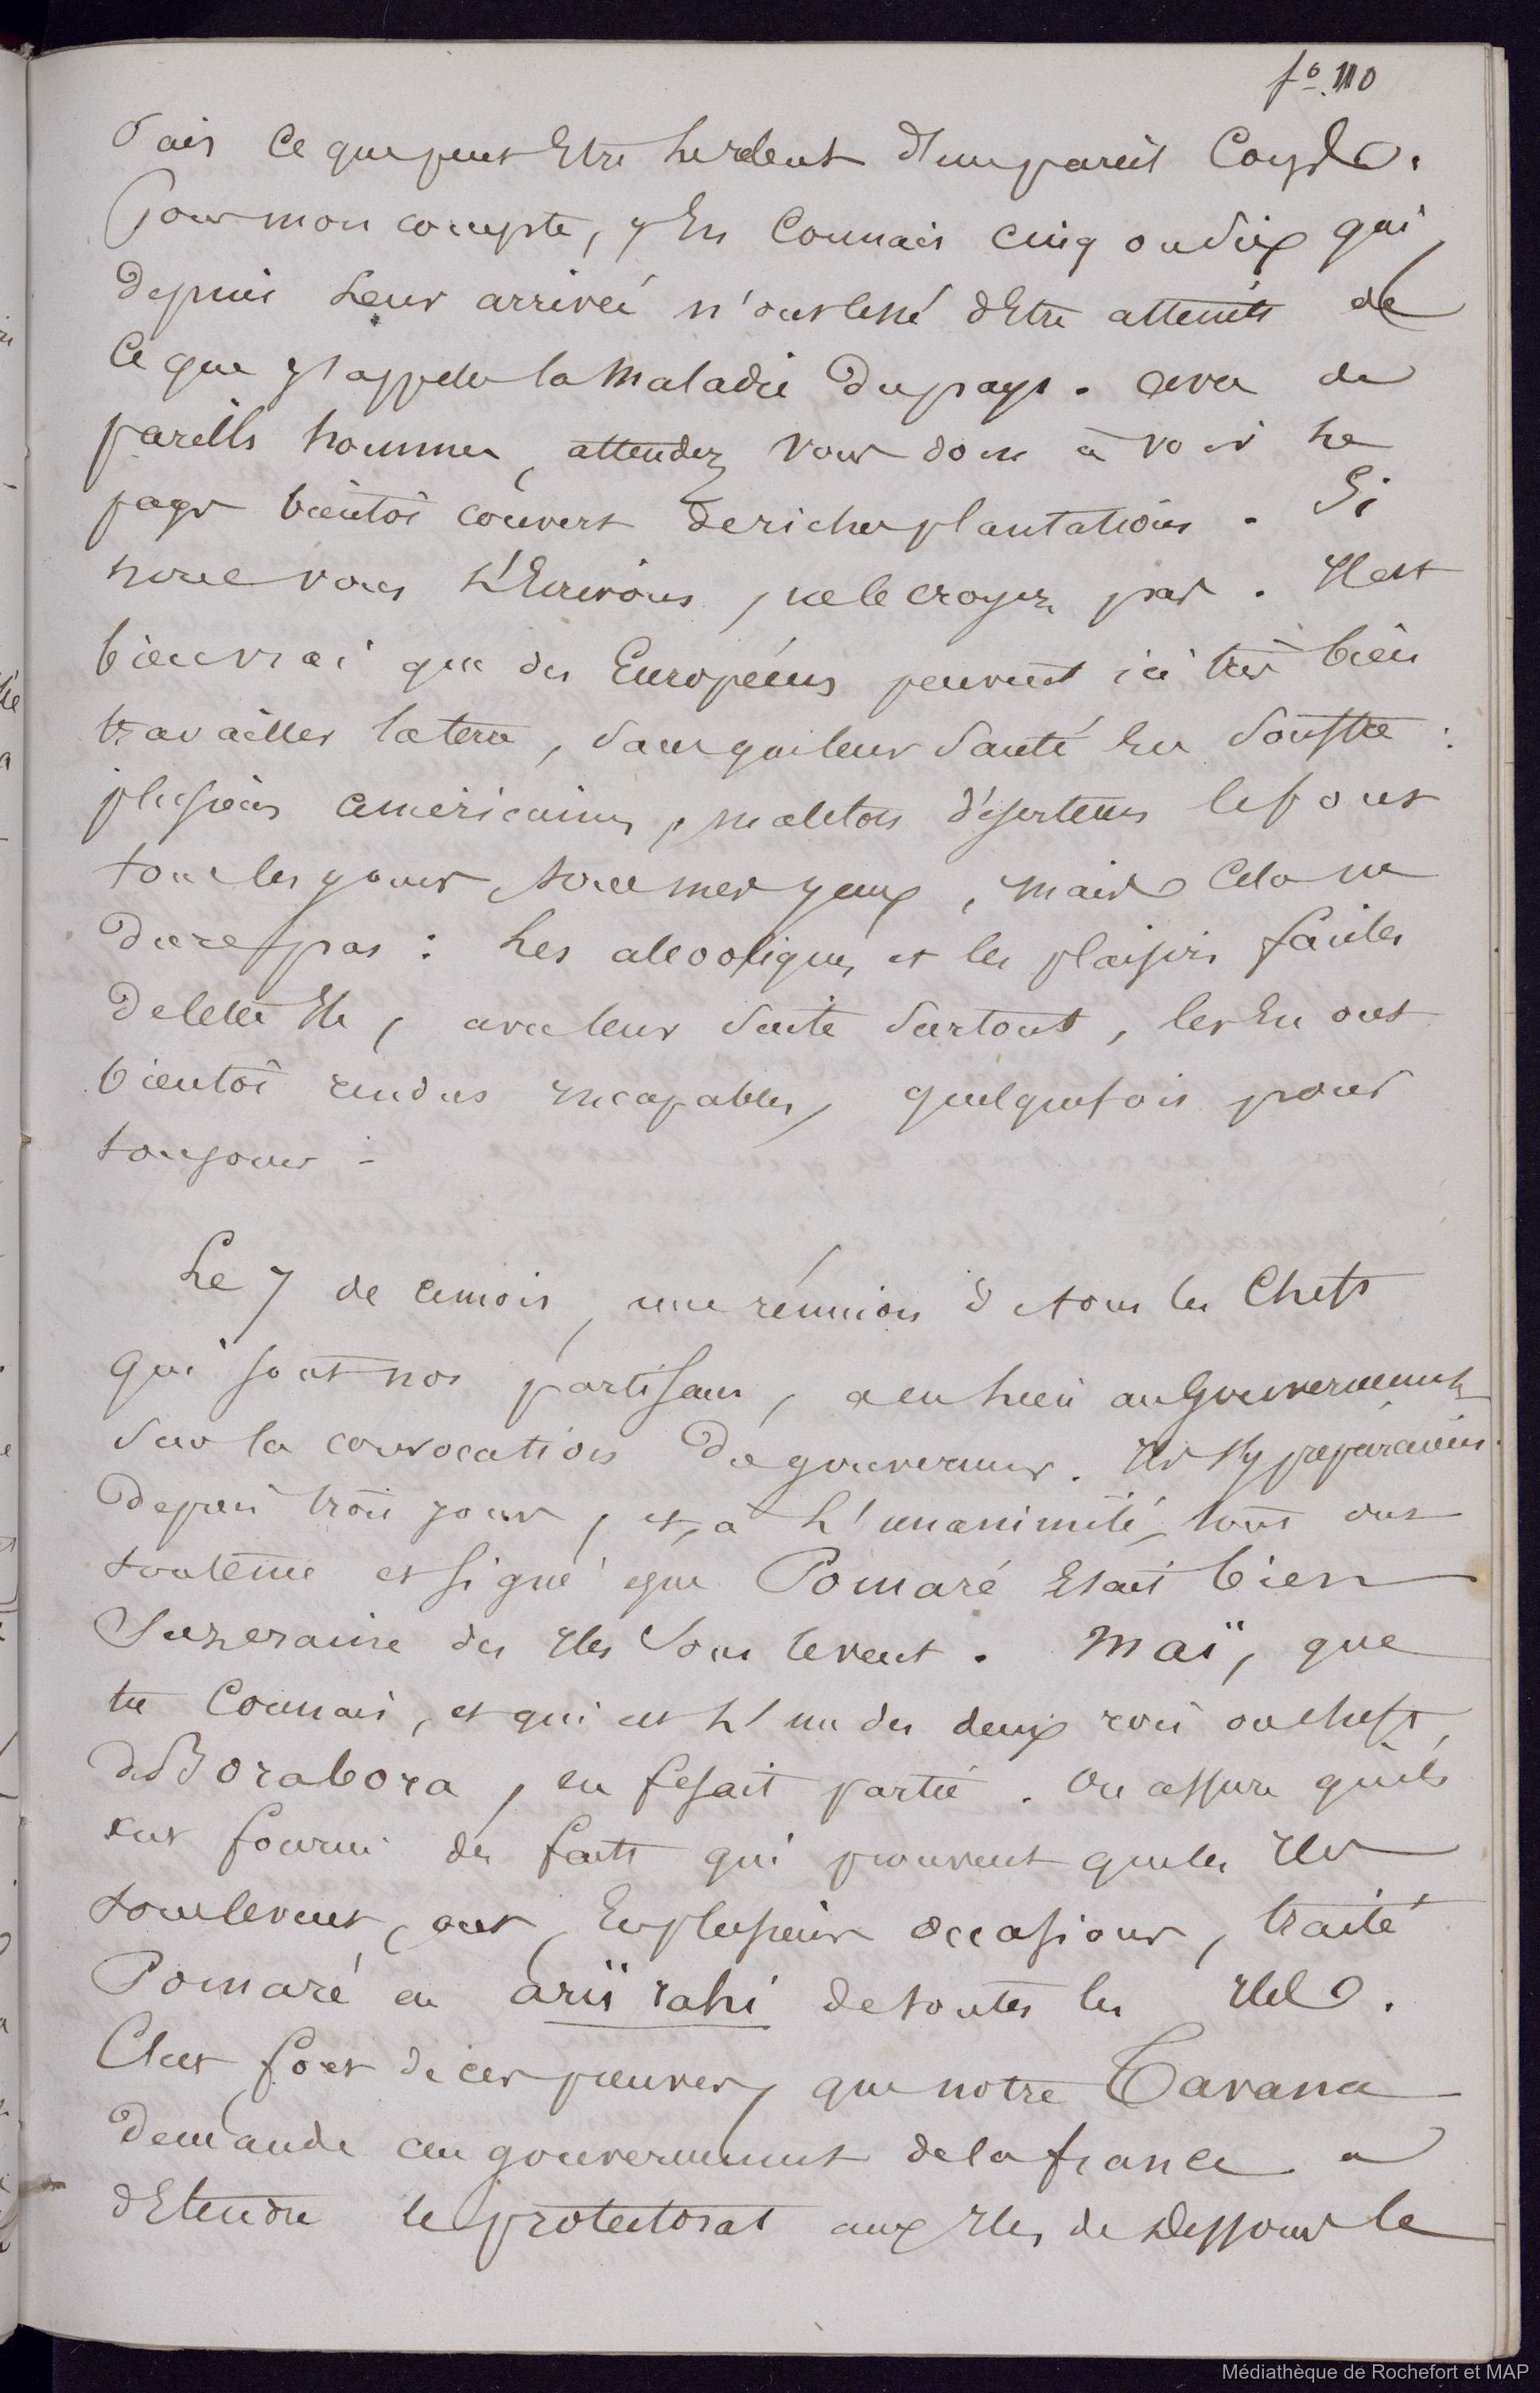 f° 110
Sais ce que peut être le client d'un pareil
Pour mon compte, j'En Connais cinq ou dix qui,
depuis leur arrivée n'ont cessé d'Etre atteints de
Ce que j'appelle la Maladie du pays. avec de
pareils hommes, attendez vous donc à voir le
pays bientôt couvert de riches plantations. Si
nous vous l'Ecrivons, ne le croyez pas. Il est
bien vrai que des Européens peuvent ici très bien
travailler la terre, sans que leur Santé En Souffre :
plusieurs américains, matelots déserteurs le font
tous les jours, sous mes yeux, mais Cela ne
dure pas : Les alcooliques et les plaisirs faciles
de cette Ile, avec leur Suite Surtout, les En ont
bientôt rendus incapables, quelquefois pour
toujours -
Le 7 de ce mois, une réunion de tous les Chefs
qui sont nos partisans, a eu lieu au Gouvernement,
Sur la convocation du gouverneur. Ils s'y préparaient
depuis trois jours, et, à l'unanimité, tous ont
soutenu et Signé que Pomaré Etait bien
Suzeraine des Iles Sous le vent. Maï, que
tu Connais, et qui est l'un des deux rois ou chefs,
de Borabora, en fesait partie. On assure qu'ils
ont fourni des faits qui prouvent que les Iles
sous le vent, ont, En plusieurs occasions, traité
Pomaré en ariï rahi de toutes les Iles.
C'est fort de ces preuves, que notre Tavana
demande au gouvernement de la france a
d'Etendre le protectorat aux Iles de Dessous le
Médiathèque de Rochefort et MAP